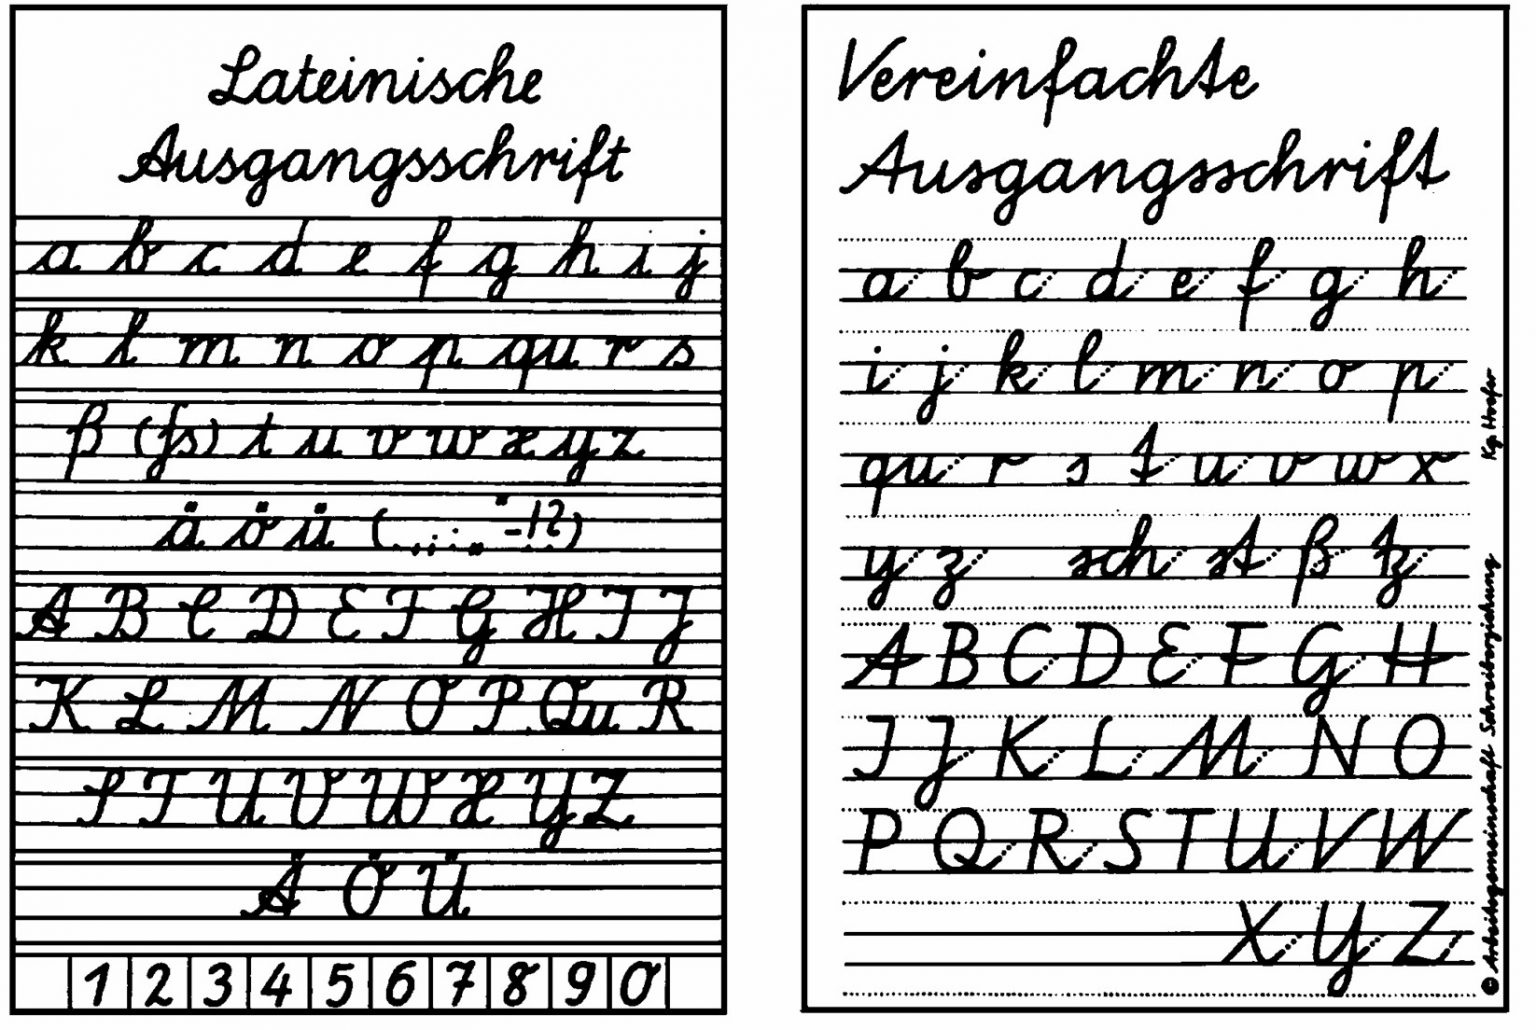 Lateinische
Ausgangsschrift
a b c d e f g h i j
k l m n o p qu r s
ß (ſs) t u v w x y z
ä ö ü (.,;:„“-!?)
A B C D E F G H I J
K L M N O P Qu R
S T U V W X Y Z
Ä Ö Ü
1 2 3 4 5 6 7 8 9 0
Vereinfachte
Ausgangsschrift
a b c d e f g h
i j k l m n o p
qu r s t u v w x
y z sch st ß tz
A B C D E F G H
I J K L M N O
P Q R S T U V W
X Y Z
© Arbeitsgemeinschaft Schreiberziehung